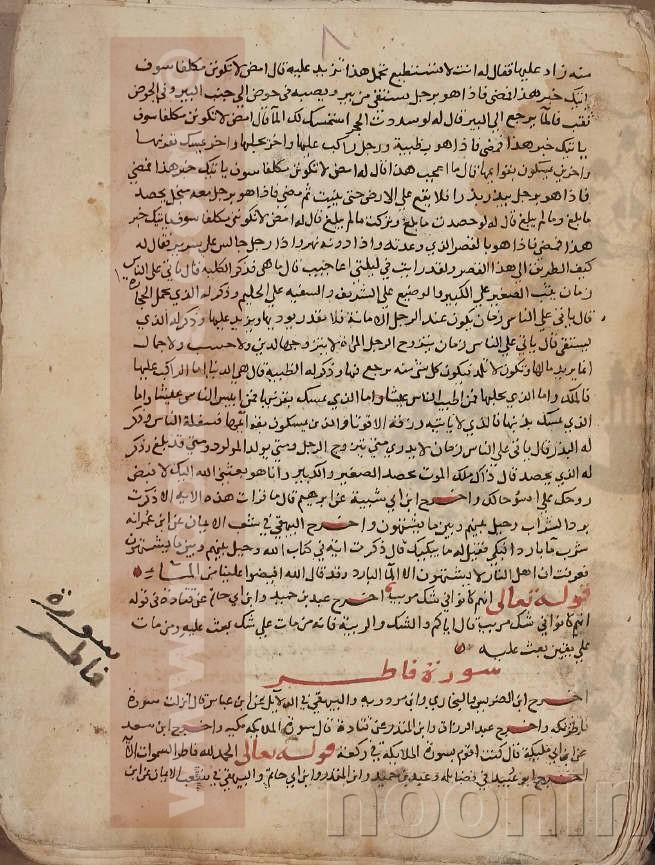 منه زاد عليها فقال له انت لا تستطيع تحمل هذا تزيد عليه قال امض لا تكونن مكلفا سوف
ياتيك خبر هذا فمضى فاذا هو برجل يستقى من بير ويصبه في حوض الى جنب البير وفي الحوض
ثقب فالما يرجع الى البير قال له لو سددت الحجر استمسك لك الما قال امض لا تكونن مكلفا سوف
ياتيك خبر هذا فمضى فاذا هو بظبية ورجل راكب عليها واخر يحلبها واخر يمسك بقرنيها
واخرين يمسكون بقوايمها قال ما اعجب هذا قال له امض لا تكونن مكلفا سوف ياتيك خبر هذا فمضى
فاذا هو برجل يبذر بذرا فلا يقع على الارض حتى ينبت ثم مضى فاذا هو برجل معه منجل يحصد
ما بلغ وما لم يبلغ قال له لو حصدت ما بلغ وتركت ما لم يبلغ قال له امض لا تكونن مكلفا سوف ياتيك خبر
هذا فمضى فاذا هو بالقصر الذي وعدته واذا دونه نهر واذا رجل جالس على سرير فقال له
كيف الطريق الى هذا القصر ولقد رايت في ليلتي اعاجيب قال ما هى فذكر الكلبة قال ياتي على الناس
زمان يثب الصغير على الكبير والوضيع على الشريف والسفيه على الحليم وذكر له الذي يحمل الحجارة
قال ياتي على الناس زمان يكون عند الرجل الامانة فلا يقدر يوديها ويزيد عليها وذكر له الذي
يستقى قال ياتي على الناس زمان يتزوج الرجل المراة لا يتزوجها لدين ولا حسب ولا جمال
انما يريد مالها وتكون لا تلد فيكون كل شى منه يرجع فيها وذكر له الظبية قال هي الدنيا اما الراكب عليها
فالملك واما الذي يحلبها فمن اطيب الناس عيشا واما الذي يمسك بقرنيها فمن ايبس الناس عيشا واما
الذي يمسك بذنبها فالذي لا ياتيه رزقه الا قوتا والذين يمسكون بقوايمها فسفلة الناس وذكر
له البذر قال ياتي على الناس زمان لا يدري متى يتزوج الرجل ومتى يولد المولود ومتى قد بلغ وذكر
له الذي يحصد قال ذاك ملك الموت يحصد الصغير والكبير وانا هو بعثني الله اليك لاقبض
روحك على اسوء حالك واخرج ابن ابي شيبة عن ابرهيم قال ما قرات هذه الاية الا ذكرت
برد الشراب وحيل بينهم وبين ما يشتهون واخرج البيهقي في شعب الايمان عن ابن عمر انه
شرب ما باردا فبكى فقيل له ما يبكيك قال ذكرت اية في كتاب الله وحيل بينهم وبين ما يشتهون
فعرفت ان اهل النار لا يشتهون الا الما البارد وقد قال الله افيضوا علينا من الماء
قوله تعالى انهم كانوا في شك مريب اخرج عبد بن حميد وابن ابي حاتم عن قتادة في قوله
انهم كانوا في شك مريب قال اياكم والشك والريبة فانه من مات على شك بعث عليه ومن مات
على يقين بعث عليه
سورة فاطر
اخرج ابن الضريس والبخاري وابن مردويه والبيهقي في الدلايل عن ابن عباس قال انزلت سورة
فاطر بمكة واخرج عبد الرزاق وابن المنذر عن قتادة قال سورة الملايكة مكية واخرج ابن سعد
عن ابن ابي مليكة قال كنت اقوم بسورة الملايكة في ركعة قوله تعالى الحمد لله فاطر السموات الاية
اخرج ابو عبيد في فضايله وعبد بن حميد وابن المنذر وابن ابي حاتم والبيهقي في شعب الايمان عن ابن
سورة
فاطر
noonin